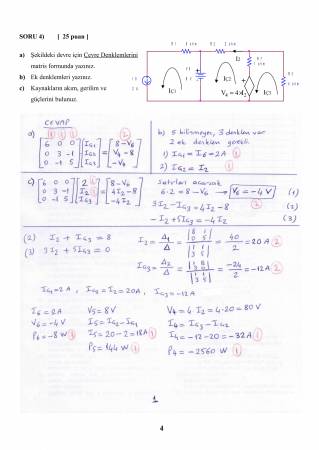 SORU 4) [ 25 puan ]
a) Şekildeki devre için Çevre Denklemlerini
matris formunda yazınız.
b) Ek denklemleri yazınız.
c) Kaynakların akım, gerilim ve
güçlerini bulunuz.
I2
IÇ1 IÇ2 IÇ3
V4 = 4.I2
CEVAP
a)
[6 0 0; 0 3 -1; 0 -1 5] [IG1; IG2; IG3] = [8-V6; V4-8; -V4]
b) 5 bilinmeyen, 3 denklem var
2 ek denklem gerekli.
1) IG1 = I6 = 2A
2) IG2 = I2
c)
[6 0 0; 0 3 -1; 0 -1 5] [2; I2; IG3] = [8-V6; 4I2-8; -4I2]
Satırları açarsak
6.2 = 8-V6 → V6 = -4 V (1)
3I2 - IG3 = 4I2 - 8 (2)
- I2 + 5IG3 = -4I2 (3)
(2) I2 + IG3 = 8
(3) 3I2 + 5IG3 = 0
I2 = Δ1/Δ = |8 1; 0 5| / |1 1; 3 5| = 40/2 = 20 A
IG3 = Δ2/Δ = |1 8; 3 0| / |1 1; 3 5| = -24/2 = -12 A
IG1 = 2A , IG2 = I2 = 20A , IG3 = -12A
I6 = 2A V5 = 8V V4 = 4.I2 = 4.20 = 80 V
V6 = -4 V I5 = IG2 - IG1 I4 = IG3 - IG2
P6 = -8 W I5 = 20 - 2 = 18A I4 = -12 - 20 = -32A
P5 = 144 W P4 = -2560 W
1
4